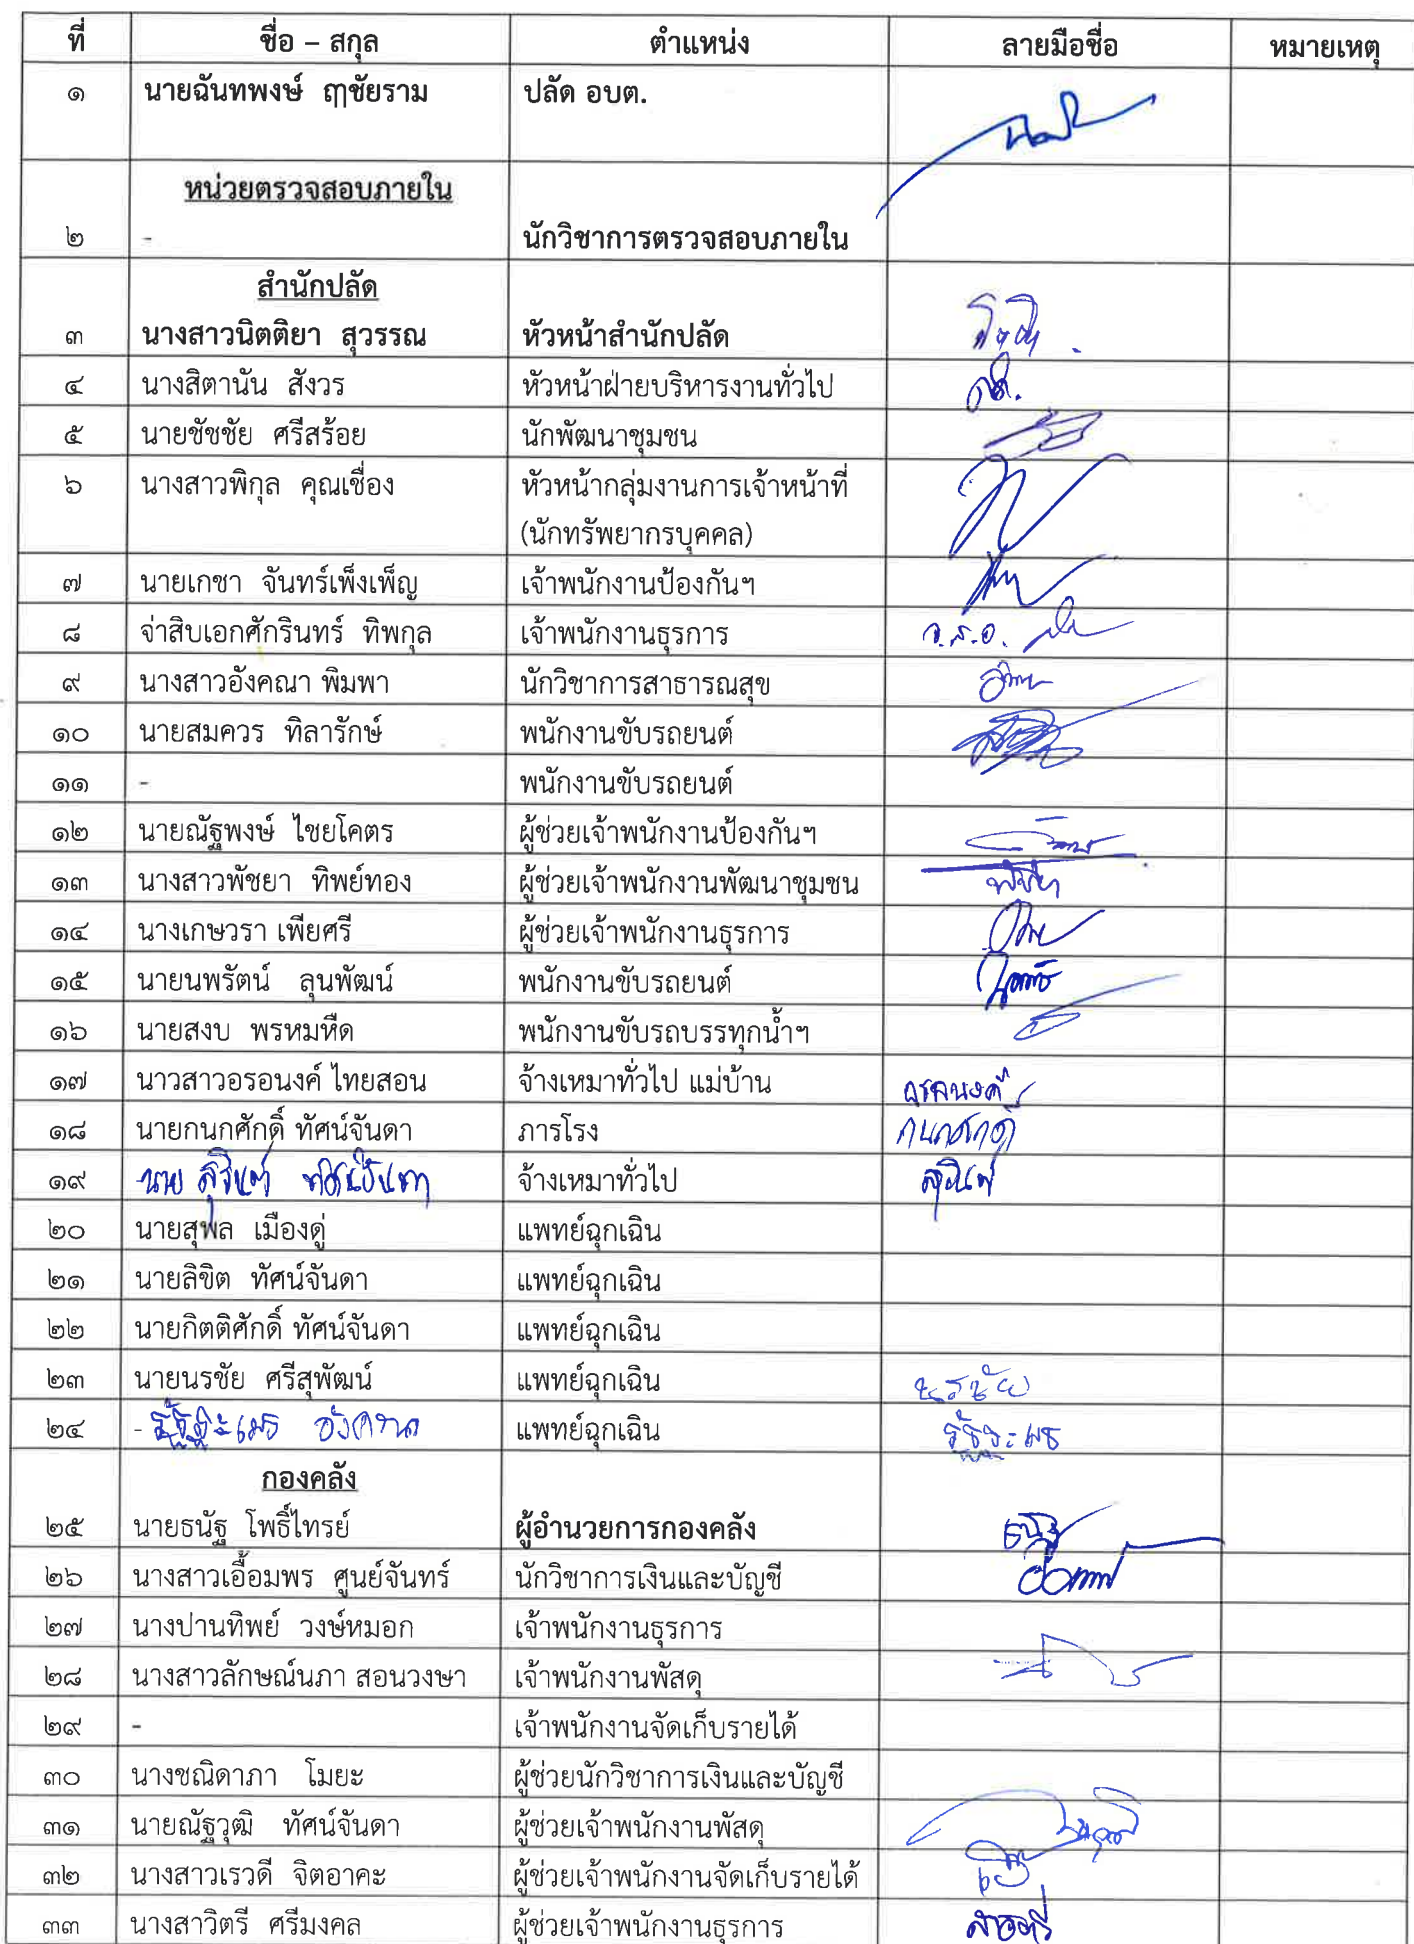 ที่ ชื่อ – สกุล ตำแหน่ง ลายมือชื่อ หมายเหตุ
๑ นายฉันทพงษ์ ฤๅชัยราม ปลัด อบต.
หน่วยตรวจสอบภายใน
๒ - นักวิชาการตรวจสอบภายใน
สำนักปลัด
๓ นางสาวนิตติยา สุวรรณ หัวหน้าสำนักปลัด
๔ นางสิตานัน สังวร หัวหน้าฝ่ายบริหารงานทั่วไป
๕ นายชัชชัย ศรีสร้อย นักพัฒนาชุมชน
๖ นางสาวพิกุล คุณเชื่อง หัวหน้ากลุ่มงานการเจ้าหน้าที่
(นักทรัพยากรบุคคล)
๗ นายเกชา จันทร์เพ็งเพ็ญ เจ้าพนักงานป้องกันฯ
๘ จ่าสิบเอกศักรินทร์ ทิพกุล เจ้าพนักงานธุรการ จ.ส.อ.
๙ นางสาวอังคณา พิมพา นักวิชาการสาธารณสุข
๑๐ นายสมควร ทิลารักษ์ พนักงานขับรถยนต์
๑๑ - พนักงานขับรถยนต์
๑๒ นายณัฐพงษ์ ไชยโคตร ผู้ช่วยเจ้าพนักงานป้องกันฯ
๑๓ นางสาวพัชยา ทิพย์ทอง ผู้ช่วยเจ้าพนักงานพัฒนาชุมชน พัชยา
๑๔ นางเกษวรา เพียศรี ผู้ช่วยเจ้าพนักงานธุรการ
๑๕ นายนพรัตน์ ลุนพัฒน์ พนักงานขับรถยนต์
๑๖ นายสงบ พรหมหืด พนักงานขับรถบรรทุกน้ำฯ
๑๗ นาวสาวอรอนงค์ ไทยสอน จ้างเหมาทั่วไป แม่บ้าน อรอนงค์
๑๘ นายกนกศักดิ์ ทัศน์จันดา ภารโรง กนกศักดิ์
๑๙ นาย สุรินต์ ทัศน์จันดา จ้างเหมาทั่วไป สุรินต์
๒๐ นายสุพล เมืองดู่ แพทย์ฉุกเฉิน
๒๑ นายลิขิต ทัศน์จันดา แพทย์ฉุกเฉิน
๒๒ นายกิตติศักดิ์ ทัศน์จันดา แพทย์ฉุกเฉิน
๒๓ นายนรชัย ศรีสุพัฒน์ แพทย์ฉุกเฉิน นรชัย
๒๔ - แพทย์ฉุกเฉิน
กองคลัง
๒๕ นายธนัฐ โพธิ์ไทรย์ ผู้อำนวยการกองคลัง ธนัฐ
๒๖ นางสาวเอื้อมพร ศูนย์จันทร์ นักวิชาการเงินและบัญชี
๒๗ นางปานทิพย์ วงษ์หมอก เจ้าพนักงานธุรการ
๒๘ นางสาวลักษณ์นภา สอนวงษา เจ้าพนักงานพัสดุ
๒๙ - เจ้าพนักงานจัดเก็บรายได้
๓๐ นางชณิดาภา โมยะ ผู้ช่วยนักวิชาการเงินและบัญชี
๓๑ นายณัฐวุฒิ ทัศน์จันดา ผู้ช่วยเจ้าพนักงานพัสดุ
๓๒ นางสาวเรวดี จิตอาคะ ผู้ช่วยเจ้าพนักงานจัดเก็บรายได้
๓๓ นางสาวิตรี ศรีมงคล ผู้ช่วยเจ้าพนักงานธุรการ สาวิตรี